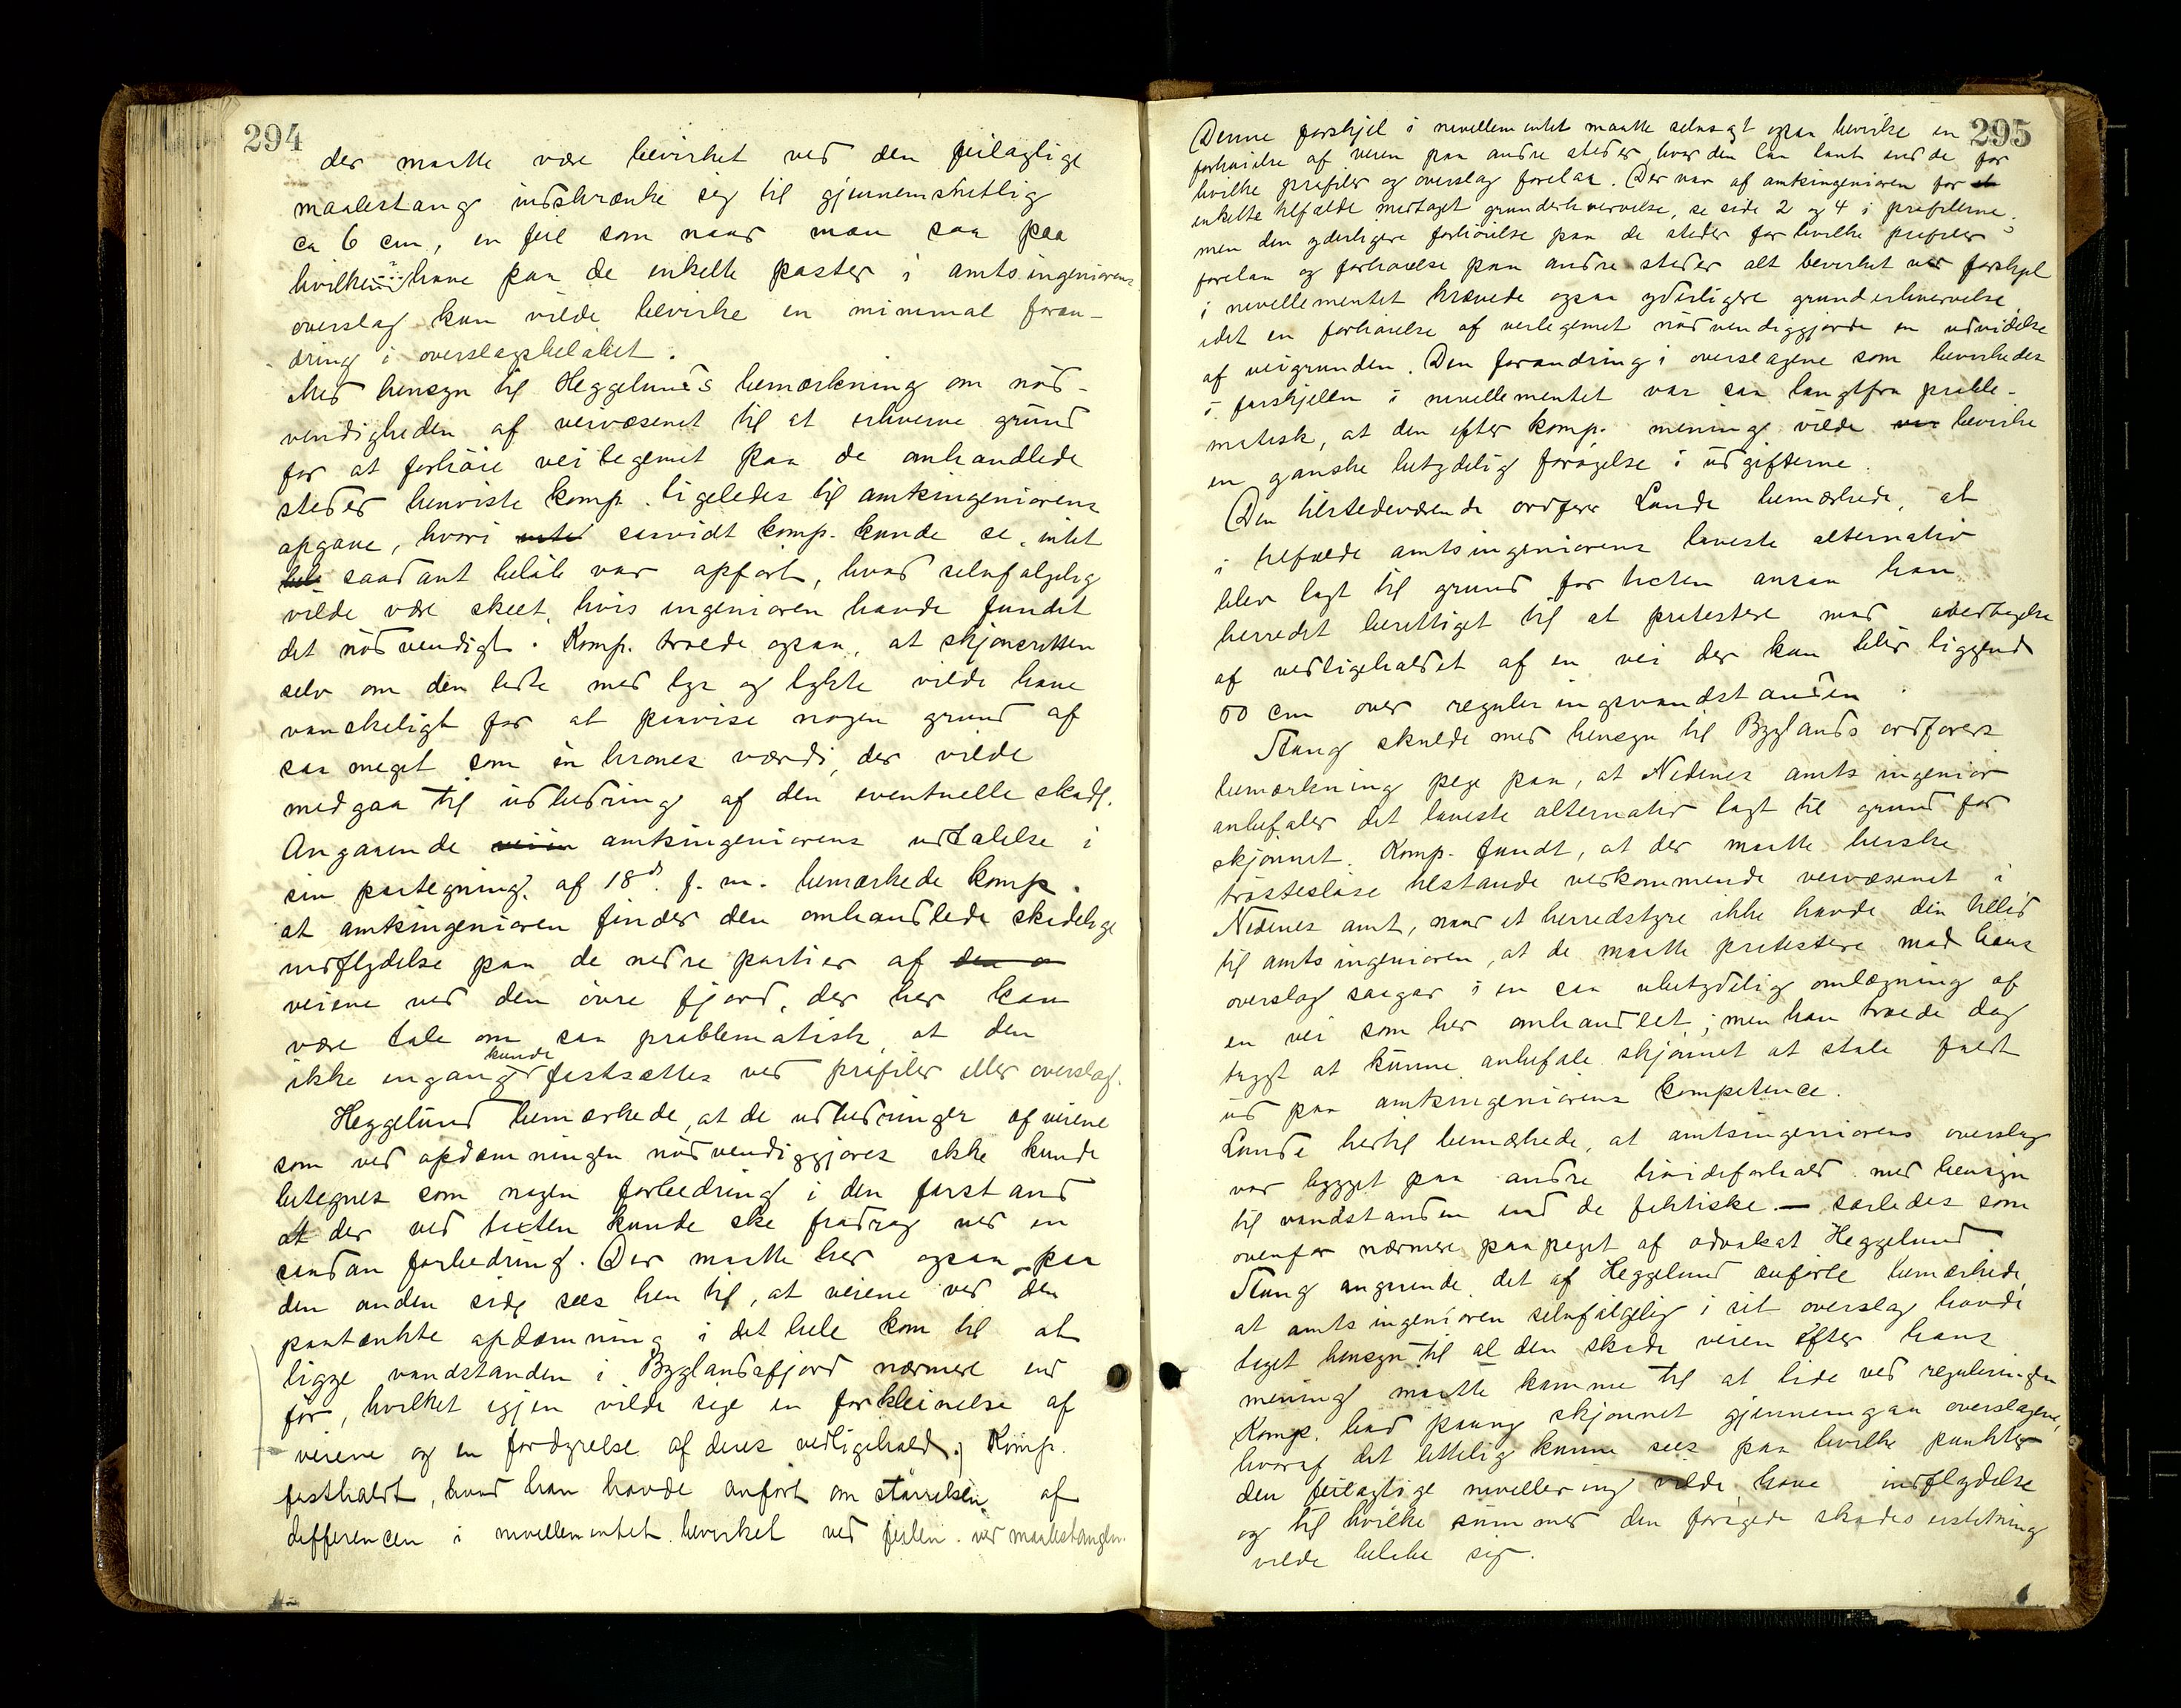 294
der maatte være bevirket ved den feilagtige
maalestang indskrænke sig til gjennemsnitlig
ca 6 cm, en feil som naar man saa paa
hvilken have paa de enkelte poster i amtsingeniorens
overslag kun vilde bevirke en minimal foran-
dring i overslagsbeløbet.
Med hensyn til Heggelunds bemærkning om nød-
vendigheden af veivæsenet til at erhverve grund
for at forhöie veilegemet paa de omhandlede
steder henviste komp. ligeledes til amtsingeniorens
opgave, hvori saavidt komp. kunde se, intet
saadant beløb var opfört, hvad selvfølgelig
vilde være skeet, hvis ingenioren havde fundet
det nödvendigt. Komp. troede ogsaa, at skjønsretten
selv om den ledte med lys og lykte vilde have
vanskeligt for at paavise nogen grund af
saa meget som én krones værdi, der vilde
medgaa til udbedring af den eventuelle skade.
Angaaende amtsingeniorens udtalelse i
sin paategning af 18d. f. m. bemærkede komp.
at amtsingenioren finder den omhandlede skadelige
indflydelse paa de nedre partier af
veiene ved den övre fjord, der her kan
være tale om saa problematisk, at den
ikke engang kunde fastsættes ved profiler eller overslag.
Heggelund bemærkede, at de udbedringer af veiene
som ved opdæmningen nödvendiggjøres ikke kunde
betegnes som nogen forbedring i den forstand
at der ved taxten kunde ske fradrag ved en
saadan forbedring. Der maatte her ogsaa paa
den anden side sees hen til, at veiene ved den
paatænkte opdæmning i det hele kom til at
ligge vandstanden i Byglandsfjord nærmere end
för, hvilket igjen vilde sige en forkleinelse af
veiene og en fordyrelse af deres vedligehold. Komp.
fastholdt, hvad han havde anført om størrelsen af
differencen i nivellementet bevirket ved feilen ved maalestangen.
295
Denne forskjel i nivellementet maatte selvsagt ogsaa bevirke en
forhøielse af veien paa andre steder, hvor den laa lavt end de for
hvilke profiler og overslag forelaa. Der var af amtsingenioren for
enkelte tilfælde medtaget grunderhvervelse, se side 2 og 4 i profilerne,
men den yderligere forhöielse paa de steder for hvilke profiler
forelaa og forhøielse paa andre steder alt bevirket ved forskjel
i nivellementet krævede ogsaa yderligere grunderhvervelse,
idet en forhöielse af veilegemet nödvendiggjorde en udvidelse
af veigrunden. Den forandring i overslagene som bevirkedes
i forskjellen i nivellementet var saa langtfra proble-
matisk, at den efter komp. mening vilde bevirke
en ganske betydelig forøgelse i udgifterne.
Den tilstedeværende ordfører Lande bemærkede, at
i tilfælde amtsingeniorens laveste alternativ
blev lagt til grund for taxten ansaa han
herredet berettiget til at protestere mod overtagelse
af vedligeholdet af en vei der kun blir liggende
60 cm over reguleringsvandstanden
Stang skulde med hensyn til Byglands ordførers
bemærkning pege paa, at Nedenes amts ingeniør
anbefaler det laveste alternativ lagt til grund for
skjönnet. Komp. fandt, at der maatte herske
tröstesløse tilstande vedkommende veivæsenet i
Nedenes amt, naar et herredstyre ikke havde den tillid
til amtsingenioren, at de maatte protestere mod hans
overslag saagar i en saa ubetydelig omlægning af
en vei som her omhandlet; men han troede dog
trygt at kunne anbefale skjønnet at stole fuldt
ud paa amtsingeniorens kompetence.
Lande hertil bemærkede, at amtsingeniorens overslag
var bygget paa andre höideforhold med hensyn
til vandstanden end de faktiske — saaledes som
ovenfor nærmere paapeget af advokat Heggelund.
Stang angaaende det af Heggelund anførte bemærkede,
at amtsingeniøren selvfølgelig i sit overslag havde
taget hensyn til al den skade veien efter hans
mening maatte komme til at lide ved reguleringen
Komp. bad paany skjønnet gjennemgaa overslagene,
hvoraf det lettelig kunne sees paa hvilke punkter
den feilagtige nivellering vilde have indflydelse
og til hvilke summer den forøgede skadeserstatning
vilde beløbe sig.